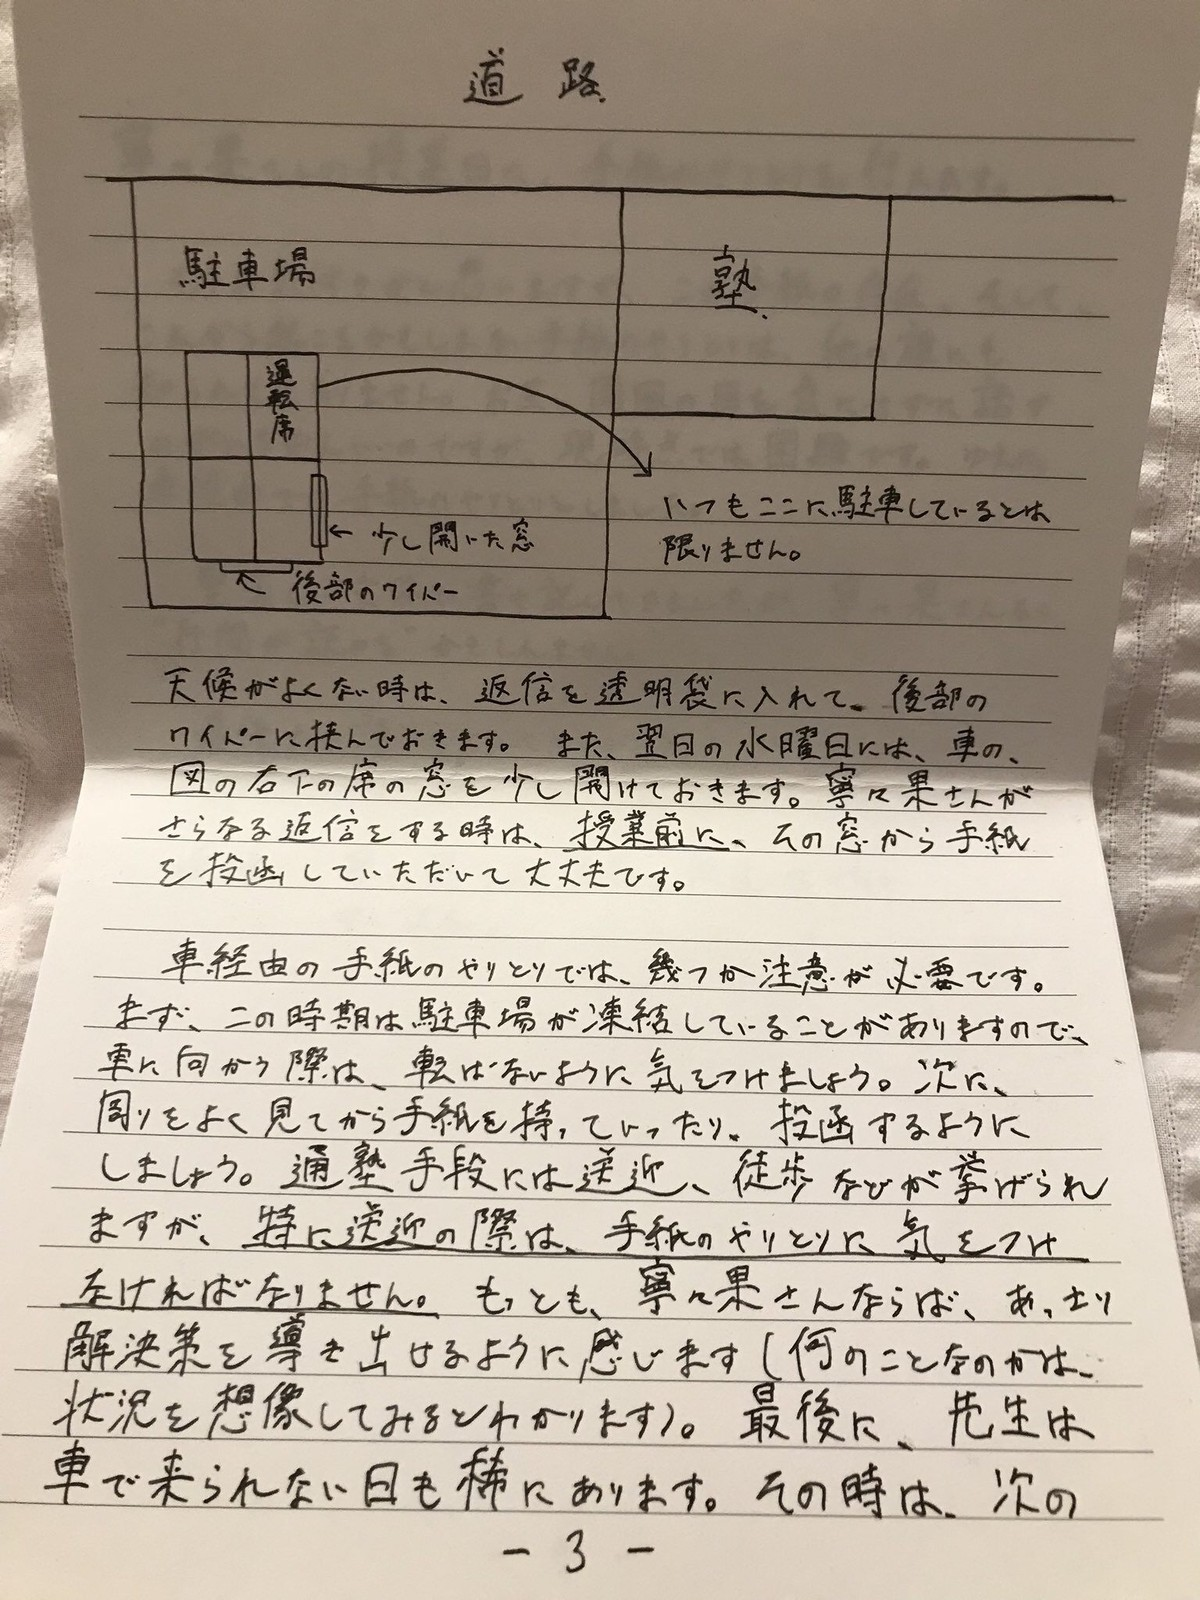 道路
駐車場
塾
運転席
いつもここに駐車しているとは
限りません。
←少し開いた窓
後部のワイパー
天候がよくない時は、返信を透明袋に入れて、後部の
ワイパーに挟んでおきます。また、翌日の水曜日には、車の、
図の右下の席の窓を少し開けておきます。寧々果さんが
さらなる返信をする時は、授業前に、その窓から手紙
を投函していただいて大丈夫です。
車経由の手紙のやりとりでは、幾つか注意が必要です。
まず、この時期は駐車場が凍結していることがありますので、
車に向かう際は、転ばないように気をつけましょう。次に、
周りをよく見てから手紙を持っていったり、投函するように
しましょう。通塾手段には送迎、徒歩などが挙げられ
ますが、特に送迎の際は、手紙のやりとりに気をつけ
なければなりません。もっとも、寧々果さんならば、あっさり
解決策を導き出せるように感じます(何のことなのかは、
状況を想像してみるとわかります)。最後に、先生は
車で来られない日も稀にあります。その時は、次の
- 3 -